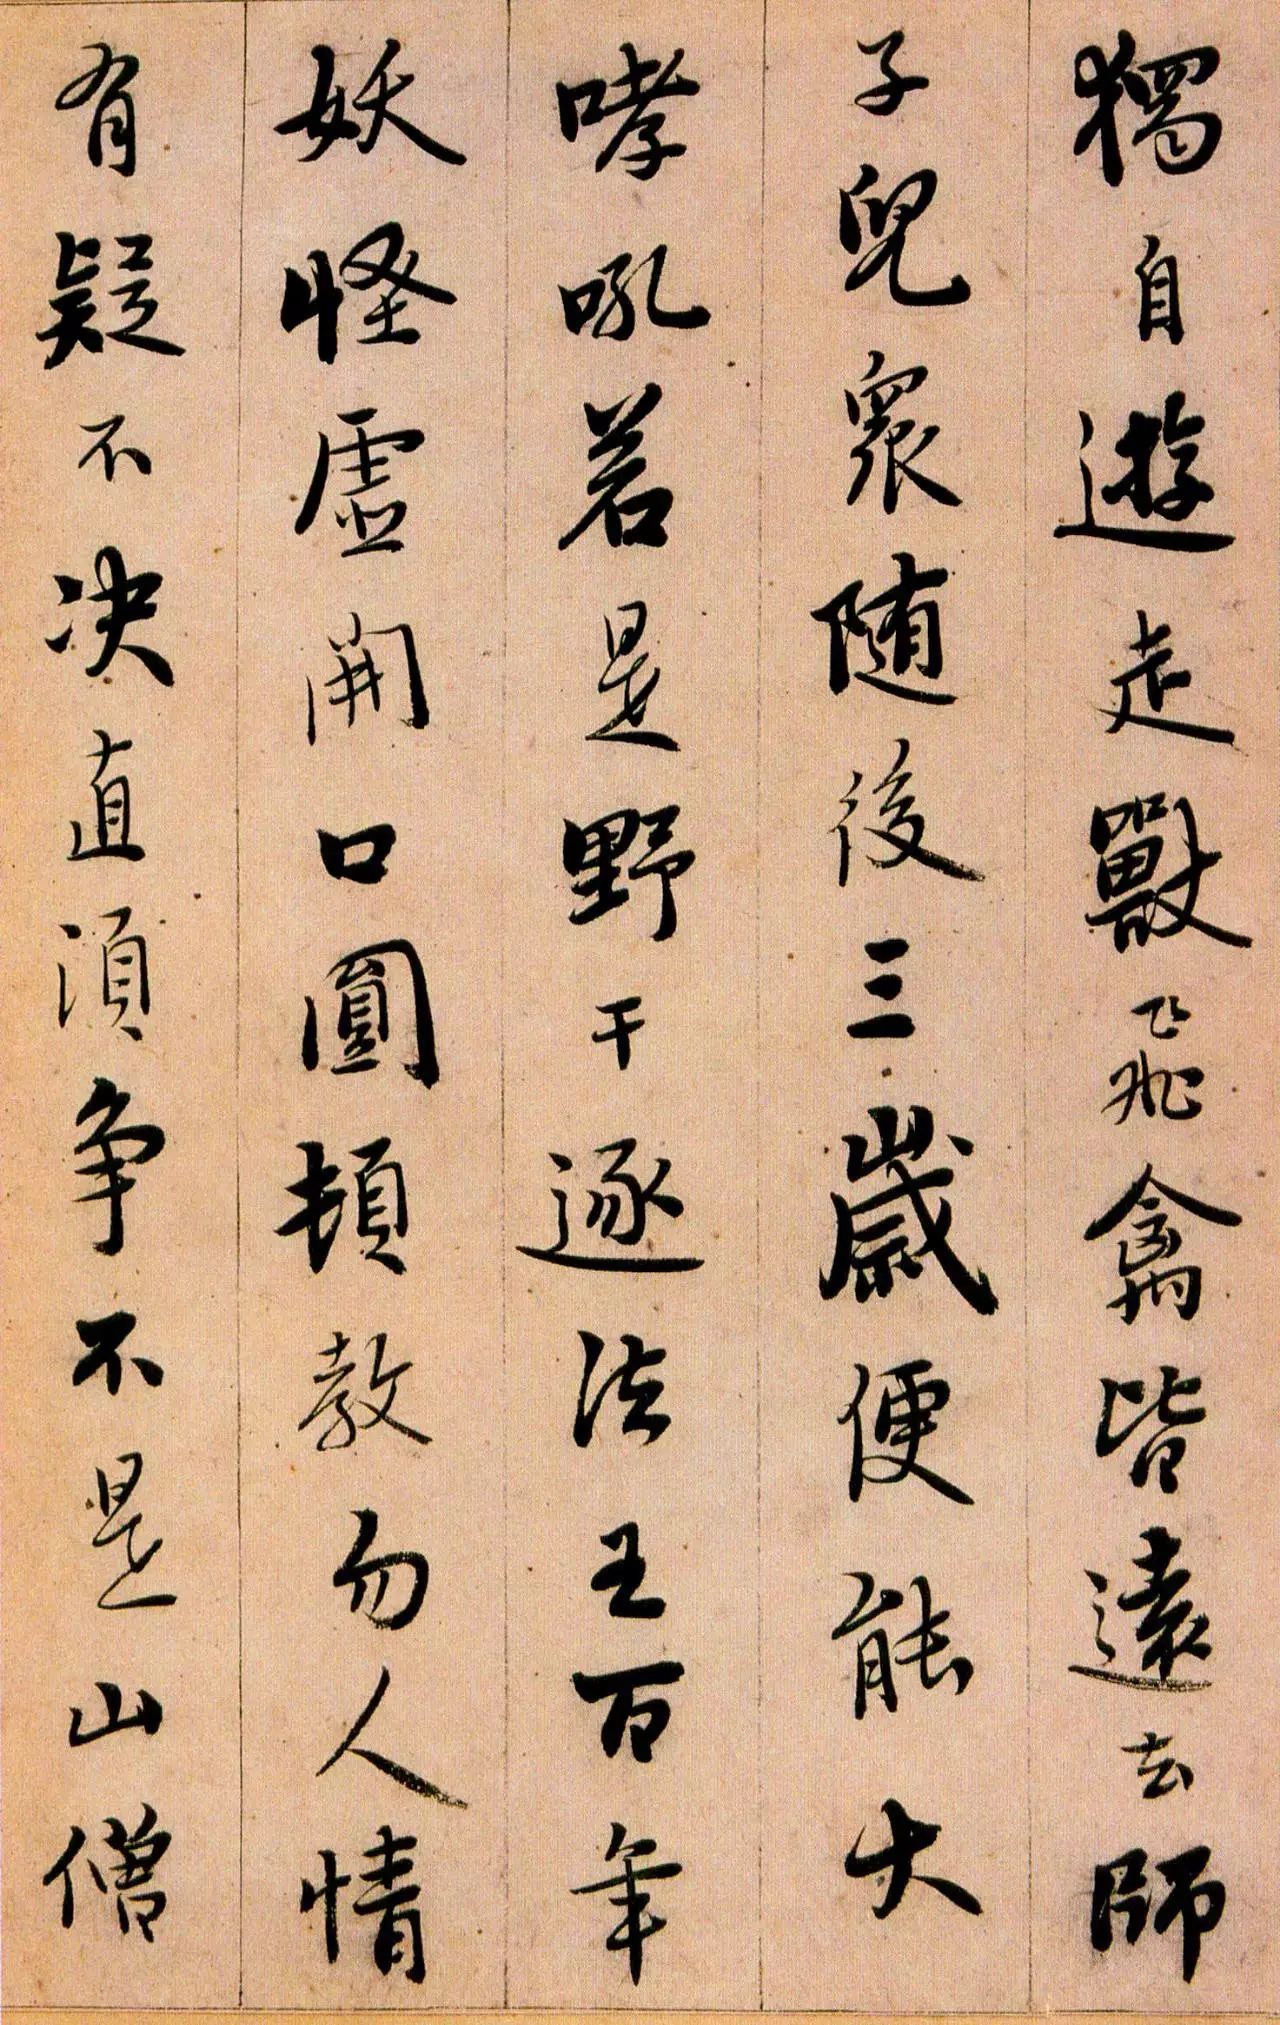 獨自遊走獸飛禽皆遠去師
子兒眾随後三歲便能大
哮吼若是野干逐法王百年
妖怪虛開口圓頓教勿人情
有疑不决直湏争不是山僧